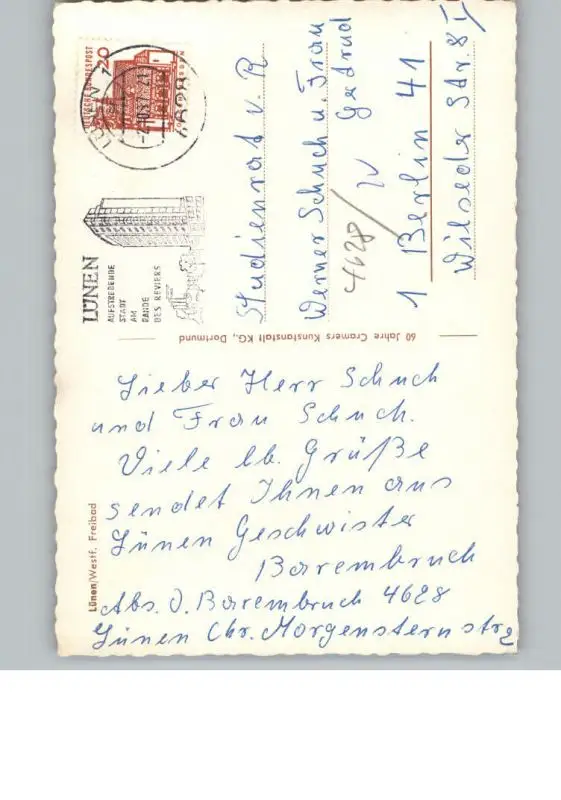 Lieber Herr Schuch
und Frau Schuch.
Viele lb. Grüße
sendet Ihnen aus
Lünen Geschwister
Barembruch
Abs. O. Barembruch 4628
Lünen Chr. Morgensternstr 2
Lünen/Westf. Freibad
60 Jahre Cramers Kunstanstalt KG., Dortmund
LÜNEN
AUFSTREBENDE
STADT
AM
RANDE
DES REVIERS
DEUTSCHE BUNDESPOST
20
4628
Studienrat v. R
Werner Schuch u. Frau
Gertrud
4628/
1 Berlin 41
Wilseder Str. 8